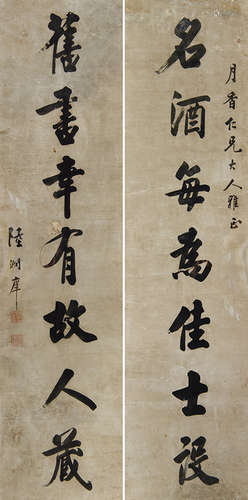 月香仁兄大人雅正
名酒每為佳士設
舊書幸有故人藏
陸潤庠